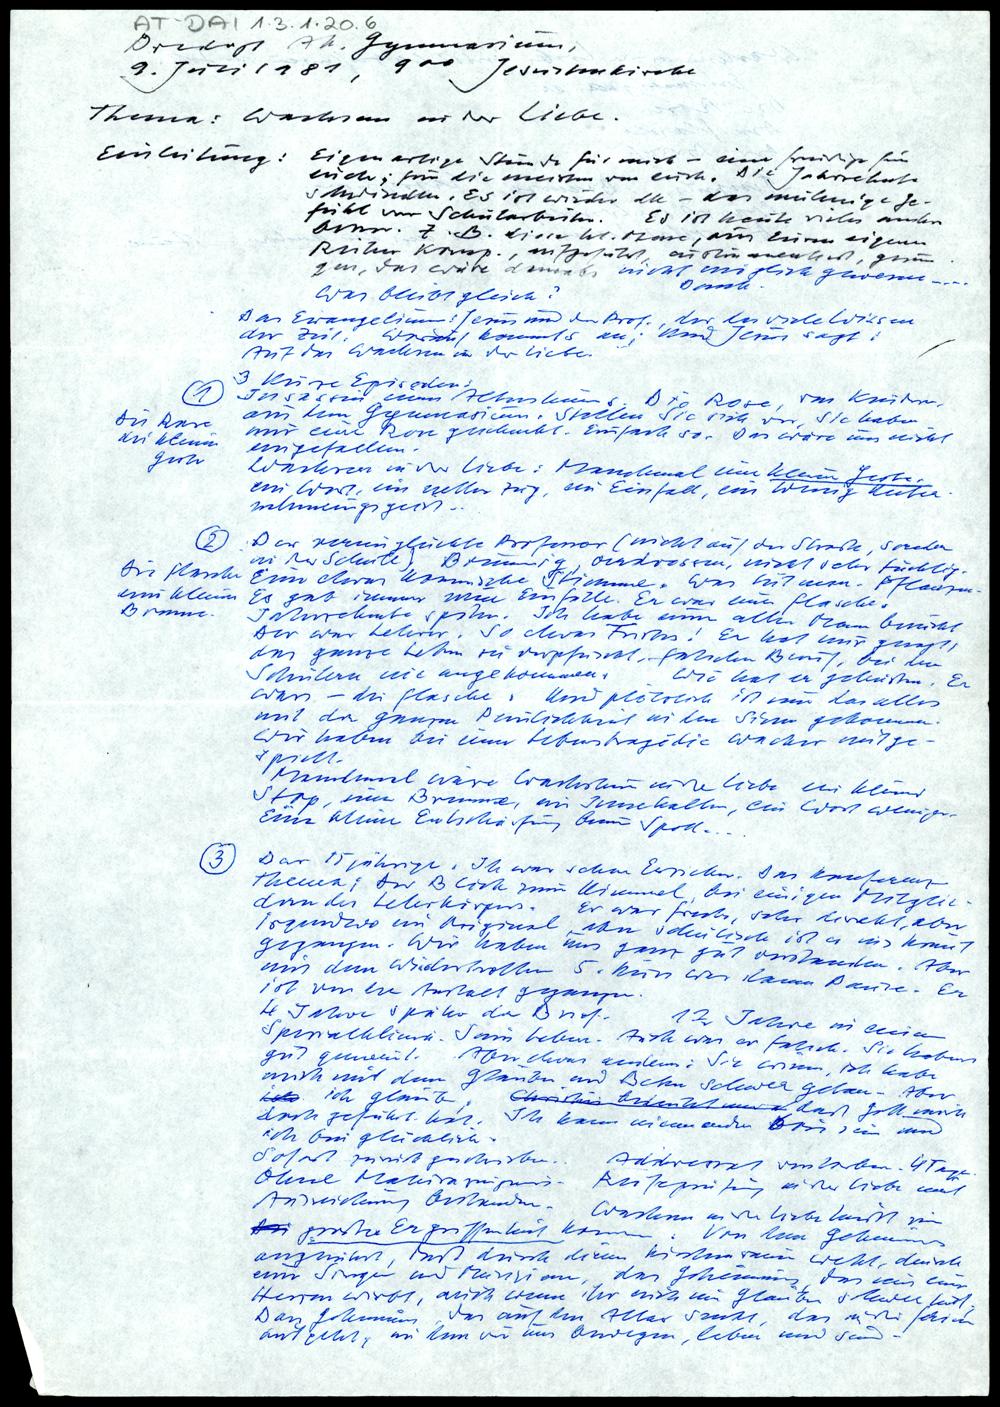 AT-DAI 1.3.1.20.6
Predigt Ak. Gymnasium,
9. Juli 1981, 9 00 Jesuitenkirche
Thema: Wachsen in der Liebe.
Einleitung: Eigenartige Stunde für mich – eine freudige für
euch; für die meisten von euch. Die Jahrzehnte
schwinden. Es ist wieder da – das mulmige Ge-
fühl von Schularbeiten. Es ist heute vieles anders
z. B. diese hl. Messe, aus euren eigenen
Reihen komp., aufgeführt, gesun-
gen, das wäre damals nicht möglich gewesen....
Dank.
Was bleibt gleich?
Das Evangelium: Jesus und der Prof., der das viele Wissen
der Zeit. Worauf kommts an; Und Jesus sagt:
Auf das Wachsen in der Liebe.
3 kurze Episoden:
1 Insassin eines Altersheims. Die Rose, von Kindern
aus dem Gymnasium. Stellen Sie sich vor, sie haben
mir eine Rose geschenkt. Einfach so. Das wäre uns nicht
eingefallen.
Die Rose
die kleine
Geste
Wachsen in der Liebe: Manchmal eine kleine Geste,
ein Wort, ein netter Zug, ein Einfall, ein wenig Unter-
nehmungsgeist..
2 Der verunglückte Professor (nicht auf der Straße, sondern
in der Schule). Brummig, verdrossen, nicht sehr tüchtig.
Eine etwas komische Stimme. Was tut man.
Es gab immer neue Einfälle. Er war eine Flasche.
Die Flasche
eine kleine
Bremse.
Jahrzehnte später. Ich habe einen alten Mann besucht
Der war Lehrer. So etwas Tristes! Er hat mir gesagt,
das ganze Leben sei verpfuscht, falscher Beruf, bei den
Schülern nie angekommen. Wie hat er geheißen. Er
wars – die Flasche. Und plötzlich ist mir das alles
mit der ganzen Peinlichkeit in den Sinn gekommen.
Wir haben bei einer Lebenstragödie wacker mitge-
spielt.
Manchmal wäre Wachstum in der Liebe ein kleiner
Stop, eine Bremse, ein Innehalten, ein Wort weniger.
Eine kleine Entschärfung beim Spott....
3 Der 15jährige. Ich war schon Erzieher. Das Konferenz-
thema: Der Blick zum Himmel, bei einigen Mitglie-
dern des Lehrkörpers. Er war frech, sehr direkt, aber
irgendwo ein Original, aber schulisch ist es nie
gegangen. Wir haben uns ganz gut verstanden. Aber
mit dem wiederholten 5. Kurs war dann Pause. Er
ist von der Anstalt gegangen.
4 Jahre später der Brief. 1 1/2 Jahre in einer
Spezialklinik. Sein Leben. Auch was er falsch. Sie habens
gut gemeint. Aber etwas anderes: Sie wissen, ich habe
mich mit dem Glauben und Beten schwer getan. Aber
ich glaube, Christus dass Gott mich
doch geführt hat. Ich kann niemandem Böse sein und
ich bin glücklich.
Sofort zurückgeschrieben.. Addressat verstorben. 4 Tage.
Ohne Maturazeugnis. Reifeprüfung in der Liebe mit
Auszeichnung bestanden. Wachsen in der Liebe heißt
große Ergriffenheit können: Von dem Geheimnis
angerührt, das durch diesen Kirchenraum weht, durch
euer Singen und Musizieren, das Geheimnis, das um eure
Herzen wirbt, auch wenn ihr euch im Glauben schwer tut,
Das Geheimnis, das auf den Altar sinkt, das in der
aufgeht, in dem wir uns bewegen, leben und sind.